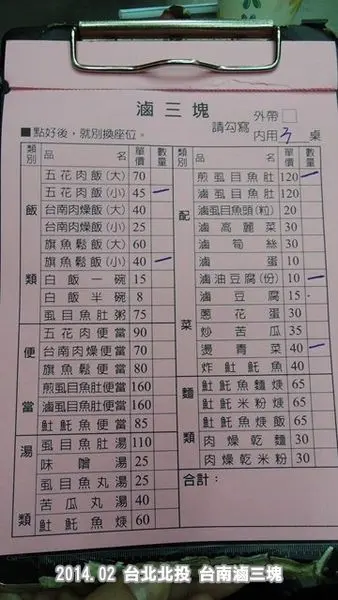 滷三塊
■點好後，就別換座位。
請勾寫
外帶□
內用 3 桌
類別 品名 單價 數量
飯類
五花肉飯(大) 70
五花肉飯(小) 45 一
台南肉燥飯(大) 40
台南肉燥飯(小) 25
旗魚鬆飯(大) 60
旗魚鬆飯(小) 40 一
白飯一碗 15
白飯半碗 8
虱目魚肚粥 75
便當
五花肉便當 90
台南肉燥便當 70
旗魚鬆便當 80
煎虱目魚肚便當 160
滷虱目魚肚便當 160
𩵚魠魚便當 85
湯類
虱目魚肚湯 110
味噌湯 25
虱目魚丸湯 25
苦瓜丸湯 40
𩵚魠魚焿 60
類別 品名 單價 數量
配菜
煎虱目魚肚 120 一
滷虱目魚肚 120
滷虱目魚頭(粒) 20
滷高麗菜 30
滷筍絲 30
滷蛋 10
滷油豆腐(份) 10 一
滷豆腐 15
蔥花蛋 30
炒苦瓜 35
燙青菜 40 一
炸𩵚魠魚 40
麵類
𩵚魠魚麵焿 65
𩵚魠米粉焿 65
𩵚魠魚飯焿 65
肉燥乾麵 30
肉燥乾米粉 30
合計：
2014.02 台北北投 台南滷三塊